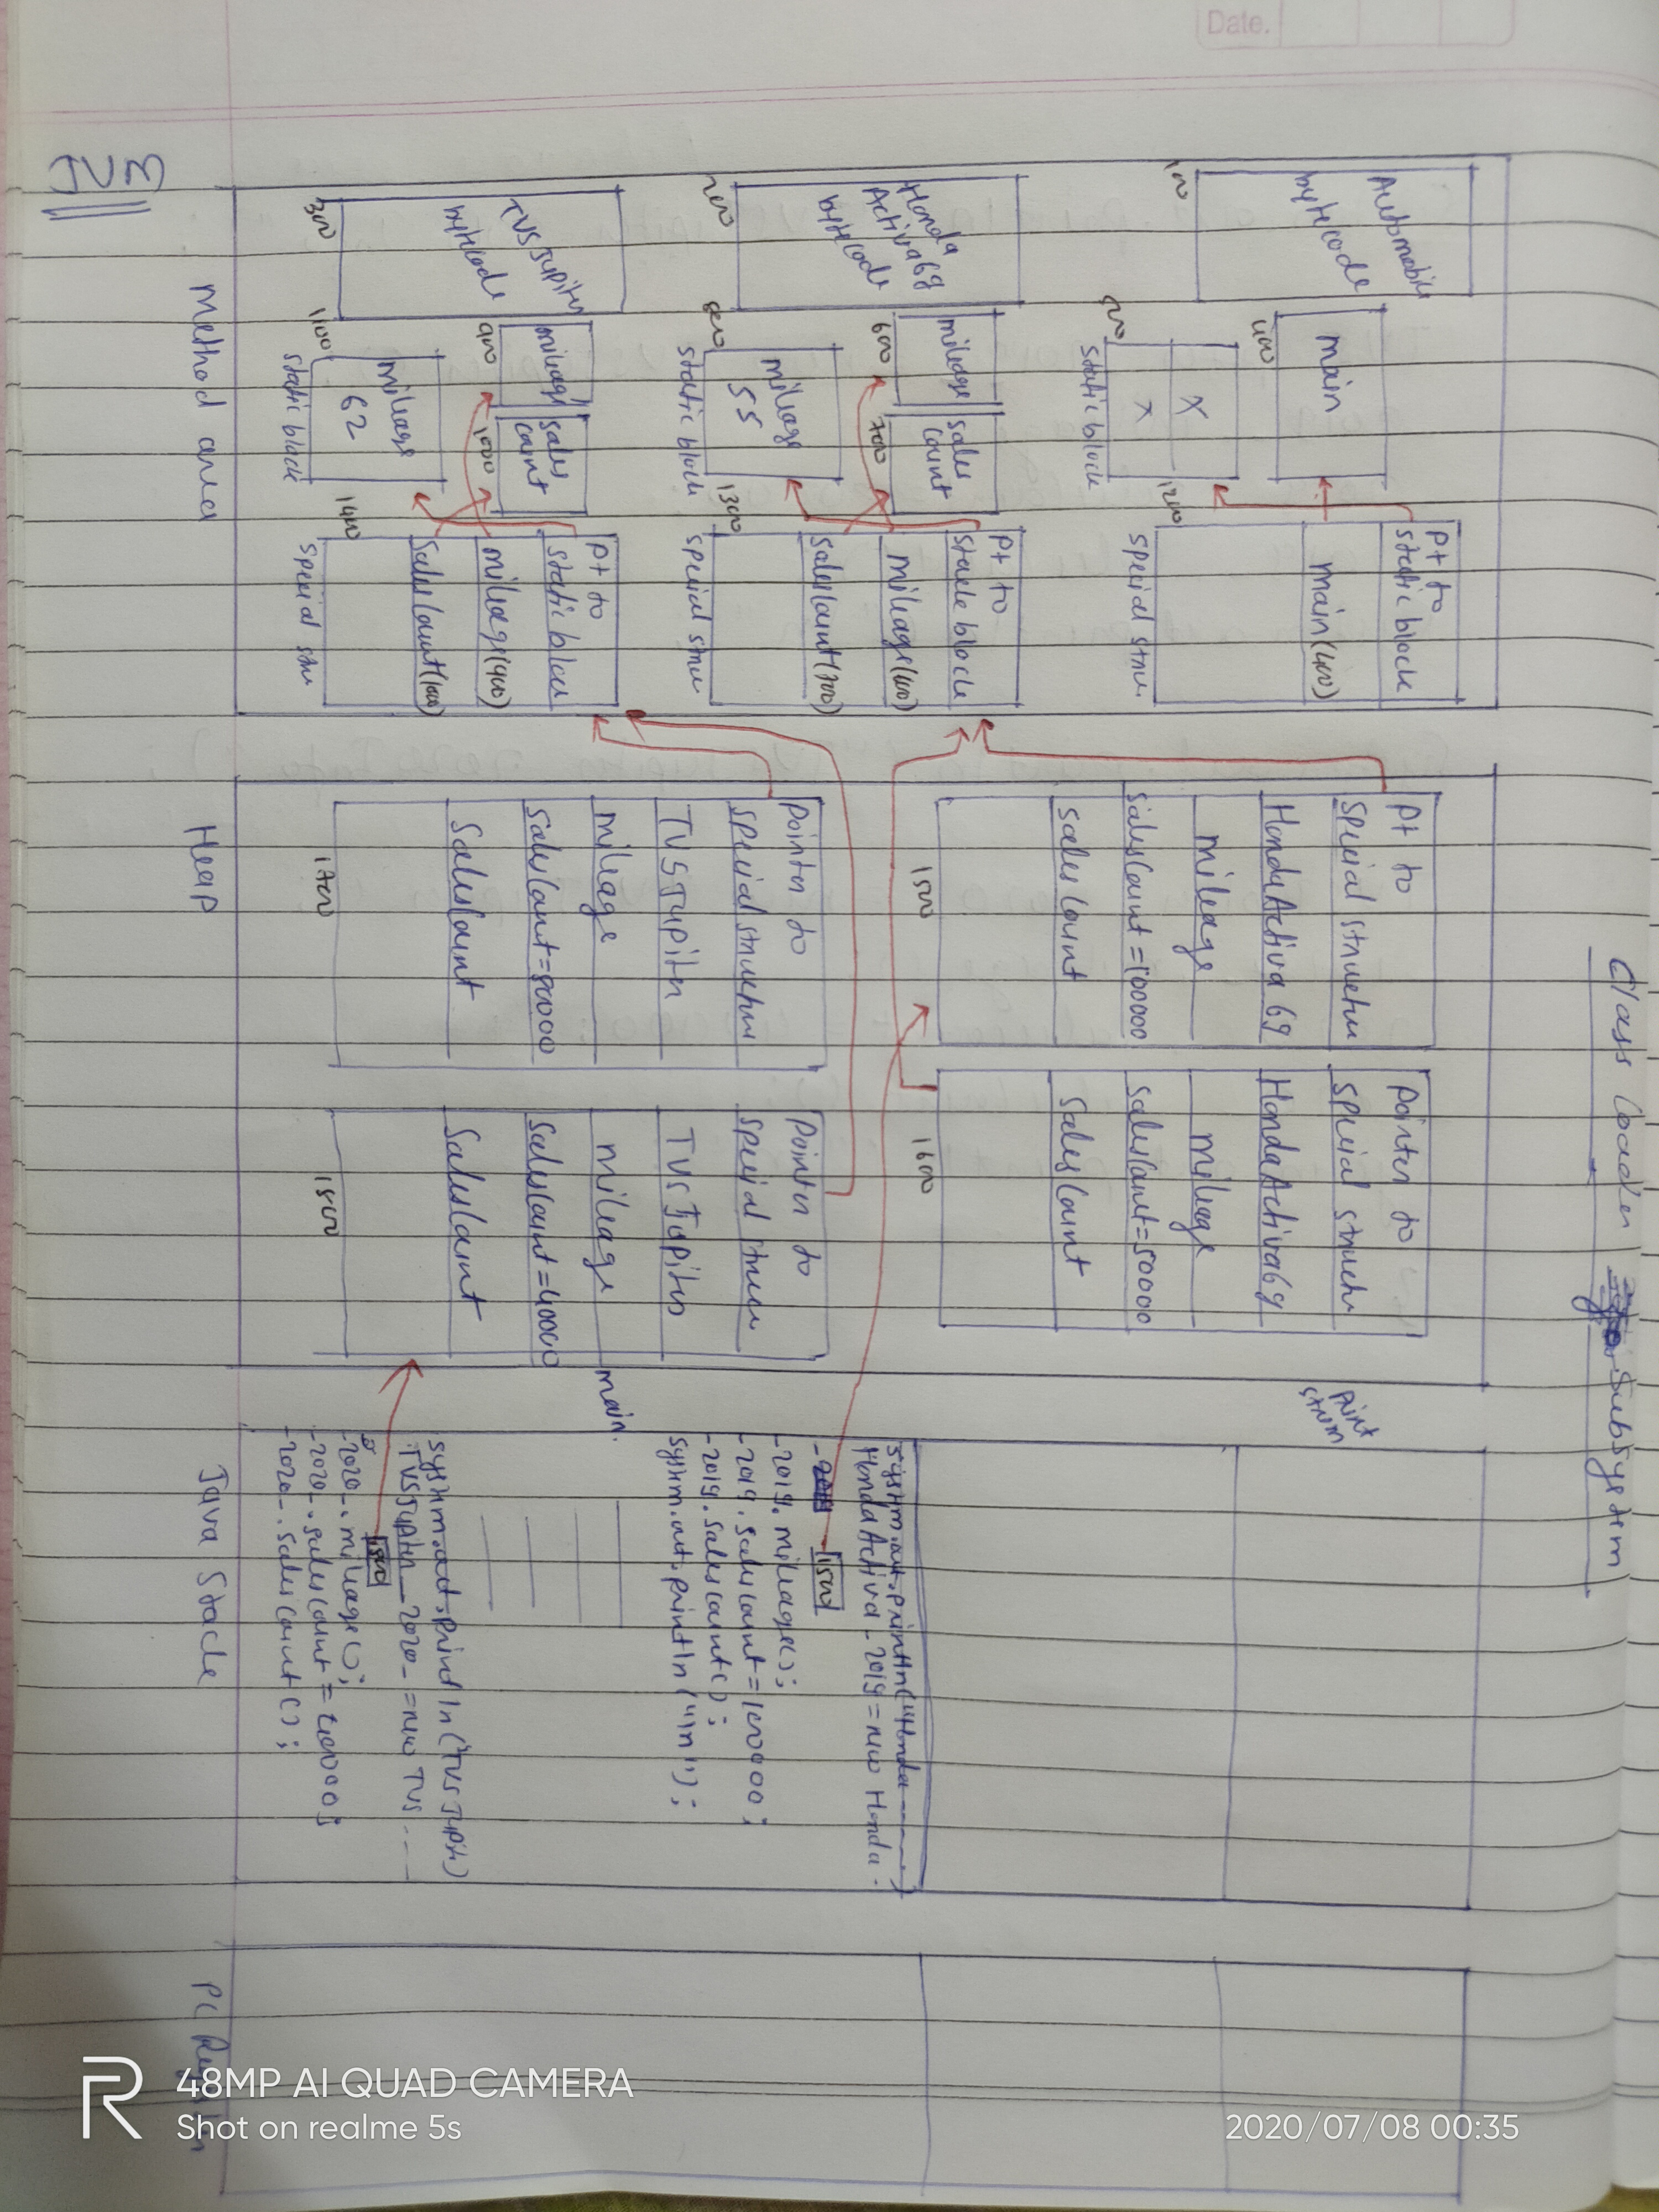 Date.
Class Loader Subsystem
JVM
Automobile
bytecode
100
main
400
X
X
500
static block
pt to
static block
main(400)
1200
special stru.
Honda
Activa6g
bytecode
200
mileage
600
sales
count
700
mileage
55
800
static block
pt to
static block
mileage(600)
salesCount(700)
1300
special stru
TVSJupiter
bytecode
300
mileage
900
sales
count
1000
mileage
62
1100
static block
pt to
static block
mileage(900)
salesCount(1000)
1400
special stru
Method area
pt to
special structure
HondaActiva 6g
mileage
salesCount=100000
salesCount
1500
pointer to
special structu
HondaActiva6g
mileage
salesCount=50000
salesCount
1600
Pointer to
special structure
TVSJupiter
mileage
salesCount=80000
salesCount
1700
Pointer to
special struc
TVSJupiter
mileage
salesCount=40000
salesCount
1800
Heap
print
strem
main.
system.out.println("Honda ------)
HondaActiva_2019=new Honda-
1500
-2019.mileage();
-2019.salesCount=100000;
-2019.salesCount();
system.out.println("\n");
system.out.println("TVSJupit)
TVSJupiter_2020_=new TVS----
1800
-2020_.mileage();
-2020_.salesCount=
-2020_.salesCount();
Java Stack
PC Register
48MP AI QUAD CAMERA
Shot on realme 5s
2020/07/08 00:35